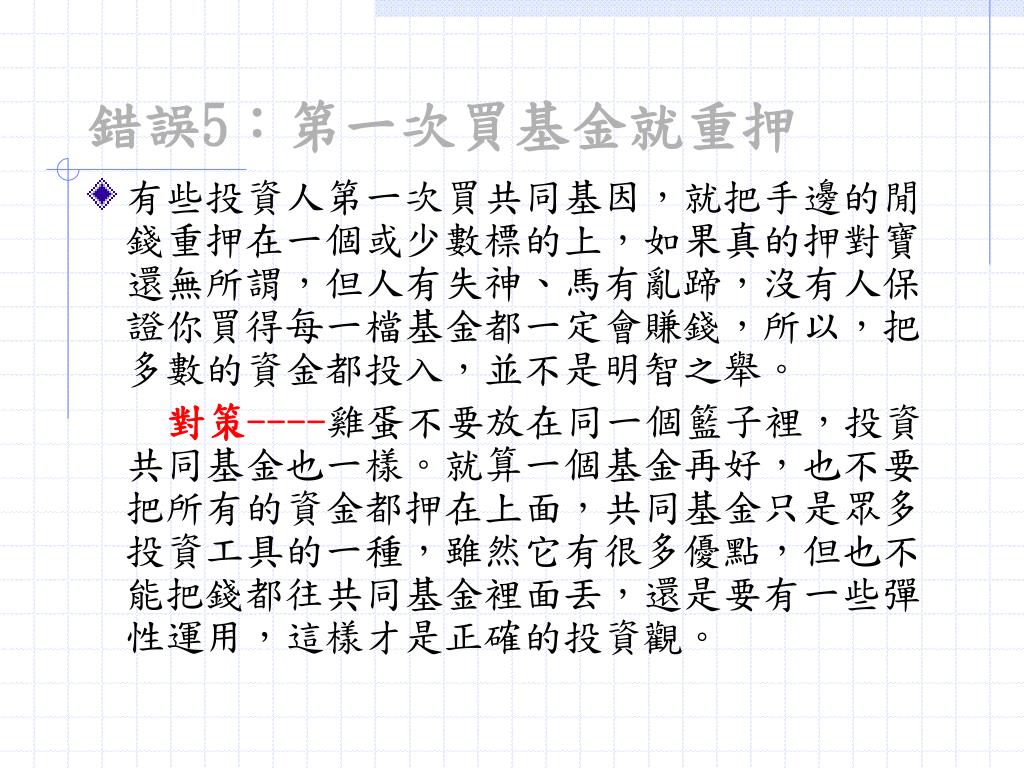 錯誤5：第一次買基金就重押
有些投資人第一次買共同基因，就把手邊的閒
錢重押在一個或少數標的上，如果真的押對寶
還無所謂，但人有失神、馬有亂蹄，沒有人保
證你買得每一檔基金都一定會賺錢，所以，把
多數的資金都投入，並不是明智之舉。
對策----雞蛋不要放在同一個籃子裡，投資
共同基金也一樣。就算一個基金再好，也不要
把所有的資金都押在上面，共同基金只是眾多
投資工具的一種，雖然它有很多優點，但也不
能把錢都往共同基金裡面丟，還是要有一些彈
性運用，這樣才是正確的投資觀。